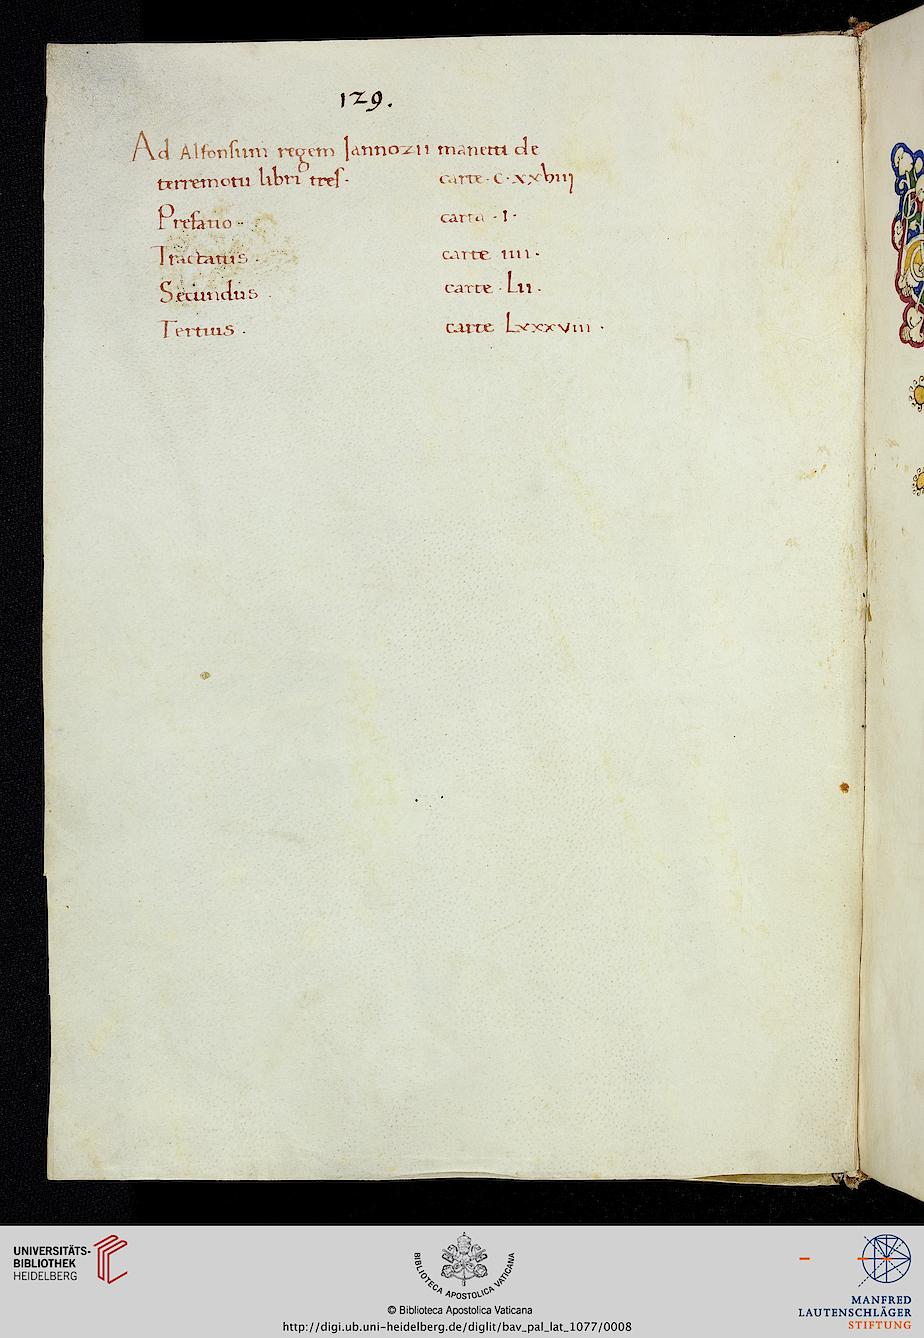 129.
Ad Alfonsum regem Iannozii manetti de
terremotu libri tres. carte. c. xxviiij
Prefatio. carta. I.
Tractatus. carte IIII.
Secundus. carte. LII.
Tertius. carte Lxxxviii.
UNIVERSITÄTS-
BIBLIOTHEK
HEIDELBERG
BIBLIOTECA APOSTOLICA VATICANA
© Biblioteca Apostolica Vaticana
http://digi.ub.uni-heidelberg.de/diglit/bav_pal_lat_1077/0008
MANFRED
LAUTENSCHLÄGER
STIFTUNG